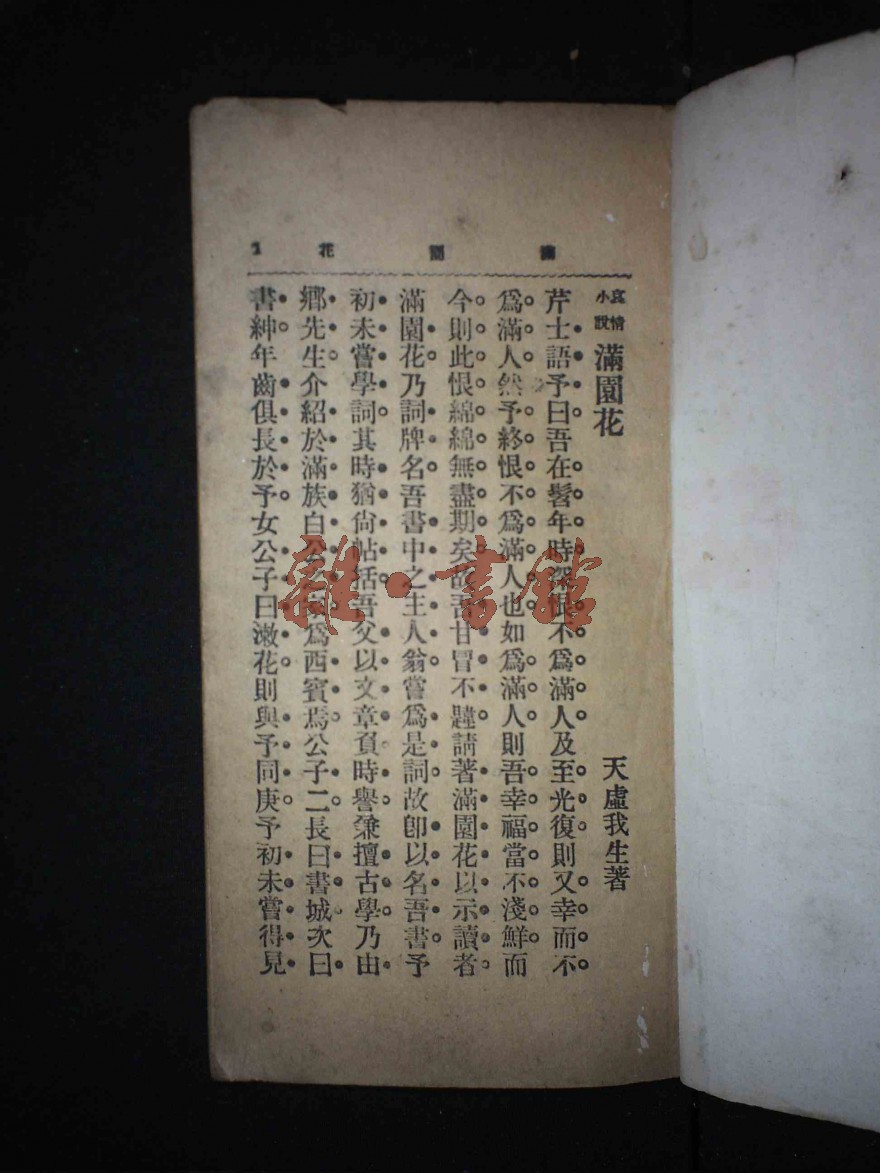 滿園花 1
哀情小說 滿園花 天虛我生著
芹士語予曰吾在髫年時深恨不爲滿人及至光復則又幸而不
爲滿人然予終恨不爲滿人也如爲滿人則吾幸福當不淺鮮而
今則此恨綿綿無盡期矣故吾甘冒不韙請著滿園花以示讀者
滿園花乃詞牌名吾書中之主人翁嘗爲是詞故卽以名吾書予
初未嘗學詞其時猶尙帖括吾父以文章負時譽兼擅古學乃由
鄉先生介紹於滿族白公爲西賓焉公子二長曰書城次曰
書紳年齒俱長於予女公子曰漱花則與予同庚予初未嘗得見
雜·書館